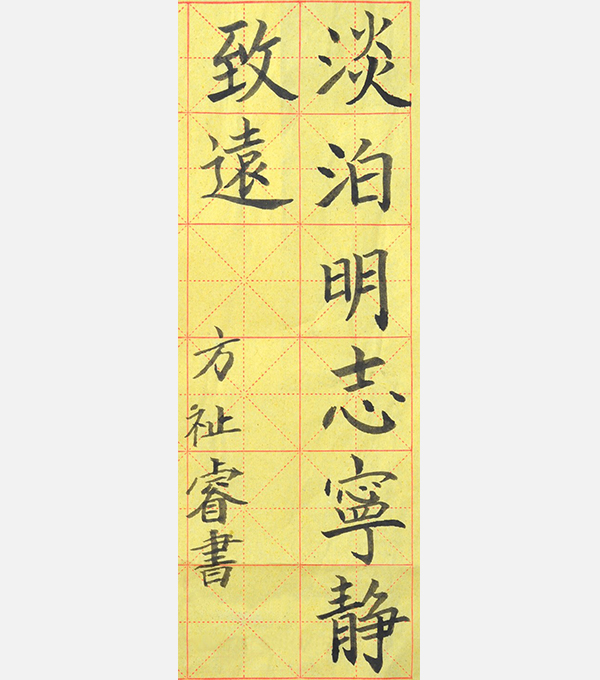 淡泊明志寧静
致遠
方祉睿書